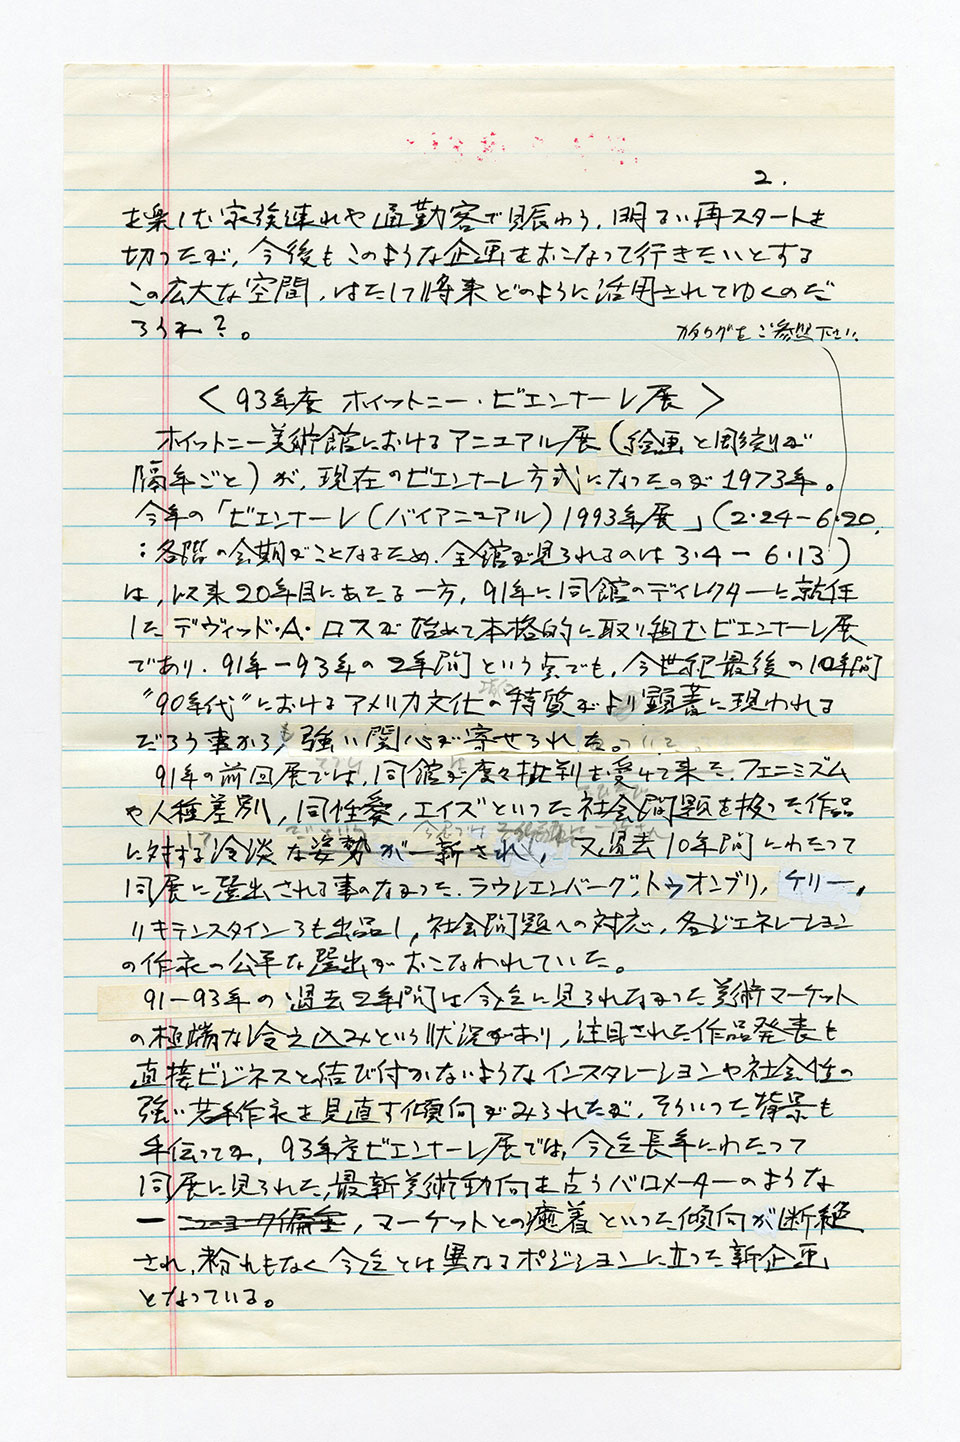 2.
を楽しむ家族連れや通勤客で賑わう、明るい再スタートを
切ったが、今後もこのような企画をおこなって行きたいとする
この広大な空間、はたして将来どのように活用されてゆくのだ
ろうか?。
カタログをご参照下さい。
〈 93年度 ホイットニー・ビエンナーレ展 〉
ホイットニー美術館におけるアニュアル展(絵画と彫刻が
隔年ごと)が、現在のビエンナーレ方式になったのが1973年。
今年の「ビエンナーレ(バイアニュアル)1993年展」(2・24−6・20,
:各階の会期がことなるため、全館が見られるのは3・4−6・13)
は、以来20年目にあたる一方、91年に同館のディレクターに就任
した デヴィッド・A・ロスが始めて本格的に取り組むビエンナーレ展
であり、91年−93年の2年間という点でも、今世紀最後の10年間
"90年代"におけるアメリカ文化の特質がより顕著に現われる
だろう事からも、強い関心が寄せられた。
91年の前回展では、同館が度々批判を受けて来た、フェミニズム
や人種差別、同性愛、エイズといった社会問題を扱った作品
に対する冷淡な姿勢が一新され、又過去10年間にわたって
同展に選出される事のなかった、ラウシェンバーグ、トゥオンブリ、ケリー、
リキテンスタインらも出品し、社会問題への対応、各ジェネレーション
の作家の公平な選出がおこなわれていた。
91−93年の過去2年間は今迄に見られなかった美術マーケット
の極端な冷え込みという状況があり、注目された作品発表も
直接ビジネスと結び付かないようなインスタレーションや社会性の
強い若手作家を見直す傾向がみられたが、そういった背景も
手伝ってか、93年度ビエンナーレ展では、今迄長年にわたって
同展に見られた、最新美術動向を占うバロメーターのような
ー ニューヨーク偏重、マーケットとの癒着といった傾向が断絶
され、紛れもなく今迄とは異なるポジションに立った新企画
となっている。